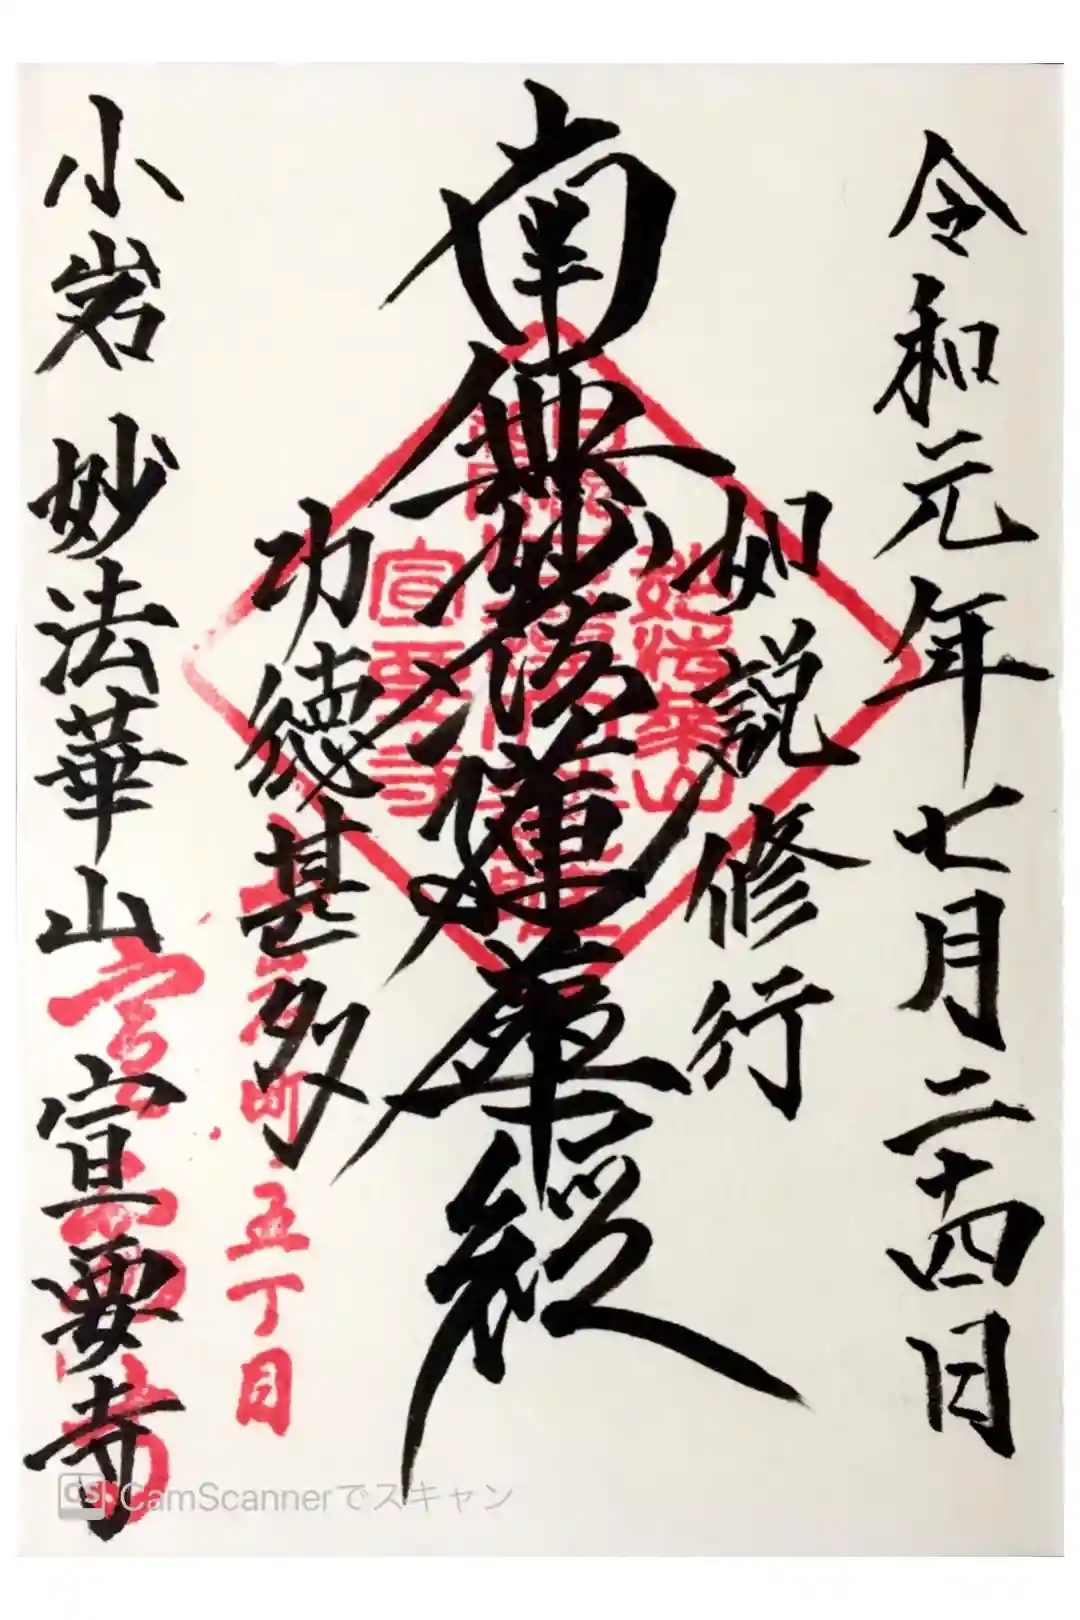 令和元年七月二十四日
如説修行
南無妙法蓮華経
功徳甚多
小岩 妙法華山 宣要寺
妙法華山
宣要寺
町五丁目
CamScannerでスキャン